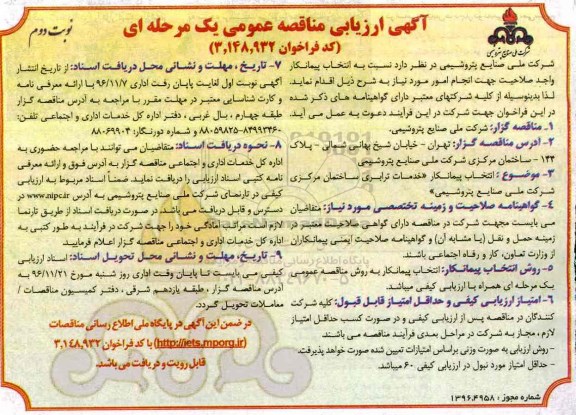 آگهی ارزیابی مناقصه عمومی یک مرحله ای
(کد فراخوان ۳,۱۴۸,۹۳۲)
نوبت دوم
شرکت ملی صنایع پتروشیمی
شرکت ملی صنایع پتروشیمی در نظر دارد نسبت به انتخاب پیمانکار
واجد صلاحیت جهت انجام امور مورد نیاز به شرح ذیل اقدام نماید.
لذا بدینوسیله از کلیه شرکتهای معتبر دارای گواهینامه های ذکر شده
در این فراخوان جهت شرکت در این فرآیند دعوت به عمل می آید.
۱ـ مناقصه گزار: شرکت ملی صنایع پتروشیمی.
۲ـ آدرس مناقصه گزار: تهران - خیابان شیخ بهائی شمالی - پلاک
۱۴۴ - ساختمان مرکزی شرکت ملی صنایع پتروشیمی
۳ـ موضوع : انتخاب پیمانکار «خدمات ترابری ساختمان مرکزی
شرکت ملی صنایع پتروشیمی»
۴ـ گواهینامه صلاحیت و زمینه تخصصی مورد نیاز: متقاضیان
می بایست مجهت شرکت در مناقصه دارای گواهی صلاحیت معتبر در
زمینه حمل و نقل (یا مشابه آن) و گواهینامه صلاحیت ایمنی پیمانکاران
از وزارت تعاون، کار و رفاه اجتماعی باشند.
۵ـ روش انتخاب پیمانکار: انتخاب پیمانکار به روش مناقصه عمومی
یک مرحله ای همراه با ارزیابی کیفی می باشد.
۶ـ امتیاز ارزیابی کیفی و حداقل امتیاز قابل قبول: کلیه شرکت
کنندگان در مناقصه پس از ارزیابی کیفی و در صورت کسب حداقل امتیاز
لازم ، مجاز به شرکت در مراحل بعدی فرآیند مناقصه می باشند
- روش ارزیابی به صورت وزنی براساس امتیازات تعیین شده صورت خواهد پذیرفت.
- حداقل امتیاز مورد نبول در ارزیابی کیفی ۶۰ میباشد
۷ـ تاریخ ، مهلت و نشانی محل دریافت اسناد: از تاریخ انتشار
آگهی نوبت اول لغایت پایان رفت اداری ۹۶/۱۱/۷ با ارائه معرفی نامه
و کارت شناسایی معتبر در مهلت مقرر با مراجعه به آدرس مناقصه گزار
طبقه چهارم ، بال غربی ، دفتر اداره کل خدمات اداری و اجتماعی تلفن:
۸۴۹۹۲۴۶۰-۸۸۰۵۹۸۲۵ و شماره دورنگار: ۸۸۰۶۹۹۰۴
۸ـ نحوه دریافت اسناد: متقاضیان می توانند با مراجعه حضوری به
اداره کل خدمات اداری و اجتماعی مناقصه گزار به آدرس فوق و ارائه معرفی
نامه کتبی اسناد ارزیابی را دریافت نمایند. ضمناً اسناد مربوط به ارزیابی
کیفی در تارنمای شرکت ملی صنایع پتروشیمی به آدرس www.nipc.ir در
دسترس و قابل دریافت می باشد. در صورت دریافت اسناد از طریق تارنما
لازم است مراتب آمادگی خود را جهت شرکت در فرآیند به طور کتبی به
اداره کل خدمات اداری و اجتماعی مناقصه گزار اعلام فرمایید.
۹ـ تاریخ، مهلت و نشانی محل تحویل اسناد: اسناد ارزیابی
کیفی می بایست تا پایان وقت اداری روز شنبه مورخ ۹۶/۱۱/۲۱ به
آدرس مناقصه گزار ، طبقه یازدهم شرقی ، دفتر کمیسیون مناقصات /
معاملات تحویل گردد.
در ضمن این آگهی در پایگاه ملی اطلاع رسانی مناقصات
(http://iets.mporg.ir) با کد فراخوان ۳,۱۴۸,۹۳۲
قابل رویت و دریافت می باشد.
شماره مجوز : ۱۳۹۶.۴۹۵۸